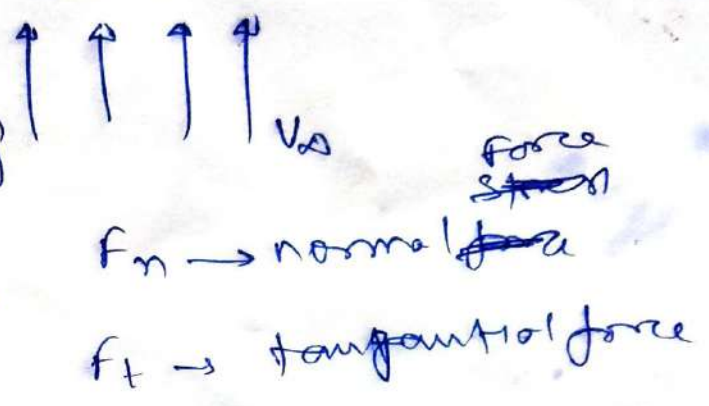 V∞
Force
Fn → normal
Ft → tangantial force